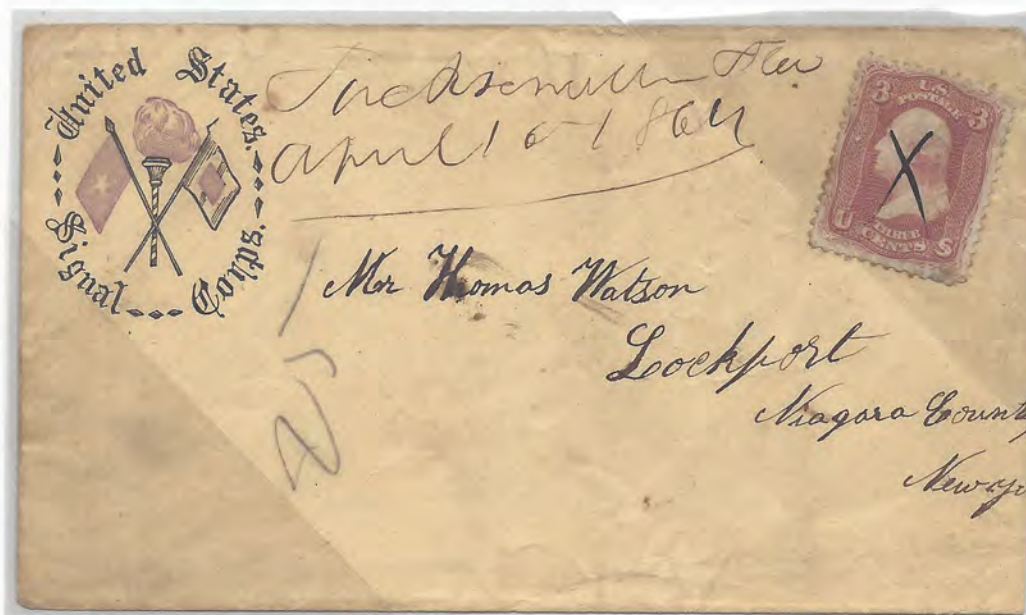 United States
Signal Corps.
Jacksonville Fla
April 16 1864
U.S.
POSTAGE
3 3
U THREE CENTS S
X
Mr Thomas Watson
Lockport
Niagara County
New yo